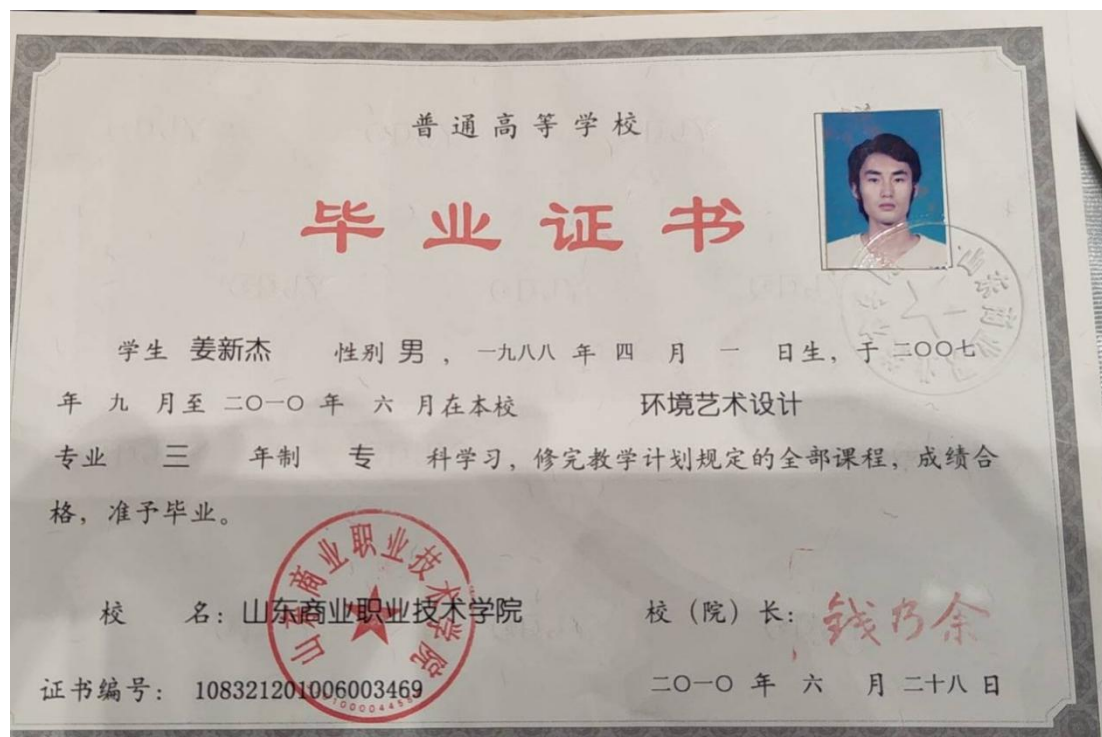 普通高等学校
毕业证书
学生 姜新杰 性别 男 , 一九八八 年 四 月 一 日生, 于 二〇〇七
年 九 月至 二〇一〇 年 六 月在本校 环境艺术设计
专业 三 年制 专 科学习, 修完教学计划规定的全部课程, 成绩合
格, 准予毕业。
山东商业职业技术学院
校 名: 山东商业职业技术学院 校（院）长: 钱乃余
证书编号: 108321201006003469 二〇一〇 年 六 月 二十八 日